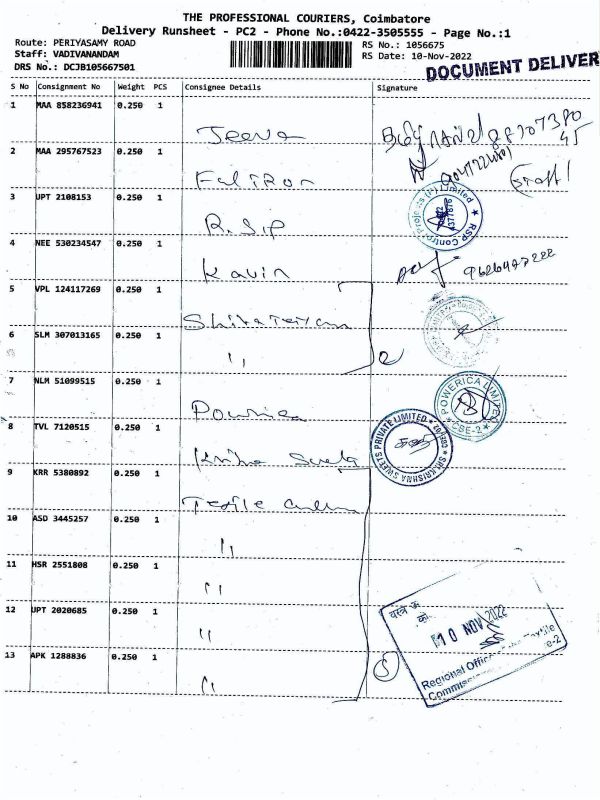 THE PROFESSIONAL COURIERS, Coimbatore
Delivery Runsheet - PC2 - Phone No.:0422-3505555 - Page No.:1
Route: PERIYASAMY ROAD
Staff: VADIVANANDAM
DRS No.: DCJB105667501
RS No.: 1056675
RS Date: 10-Nov-2022
DOCUMENT DELIVER
S No Consignment No Weight PCS Consignee Details Signature
1 MAA 858236941 0.250 1
Jeeva
2 MAA 295767523 0.250 1
3 UPT 2108153 0.250 1
R.SIP
RSP Control Projects (P) Limited
4 NEE 530234547 0.250 1
Kavin
5 VPL 124117269 0.250 1
6 SLM 307013165 0.250 1
〃
7 NLM 51099515 0.250 1
POWERICA LIMITED
CBE-2
8 TVL 7120515 0.250 1
SRI KRISHNA SWEETS PRIVATE LIMITED
9 KRR 5380892 0.250 1
10 ASD 3445257 0.250 1
〃
11 HSR 2551808 0.250 1
〃
12 UPT 2020685 0.250 1
〃
10 NOV 2022
13 APK 1288836 0.250 1
〃
5
Regional Office Textile